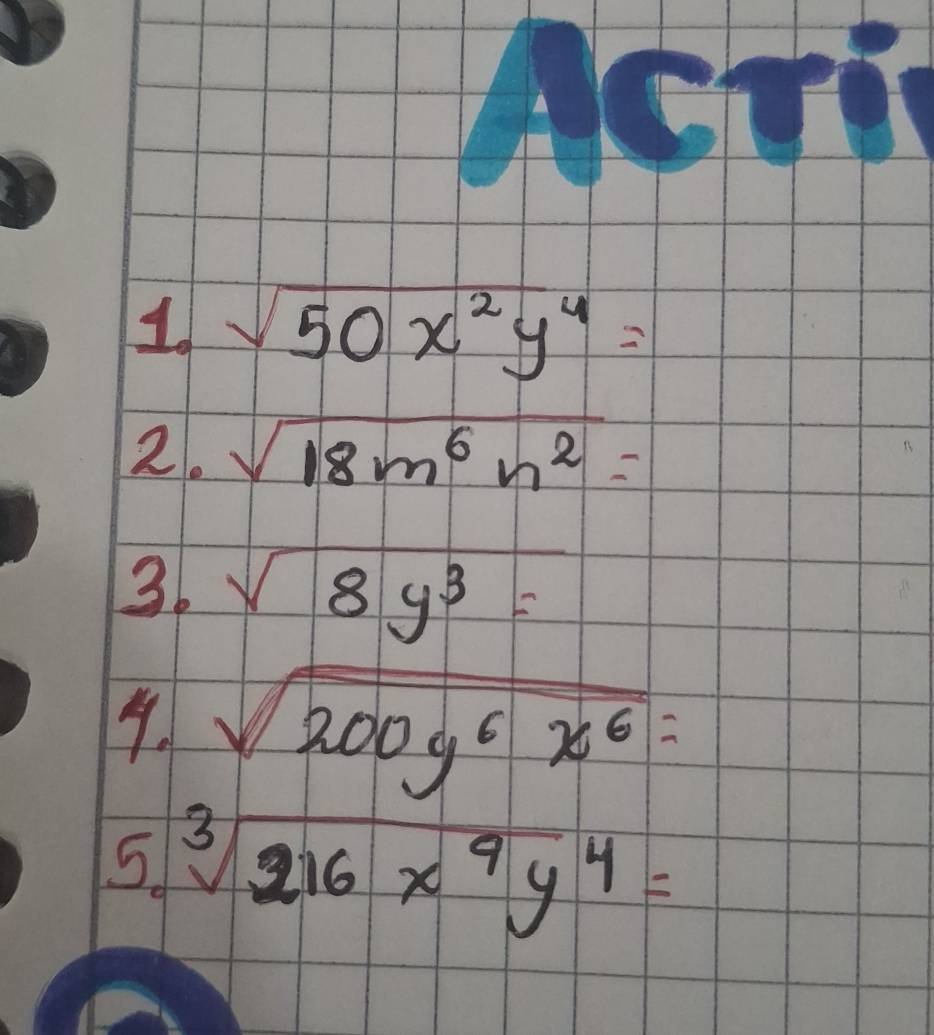 ACTi
1. √50x²y⁴ =
2. √18m⁶n² =
3. √8y³ =
4. √200y⁶x⁶ =
5. ³√216x⁹y⁴ =